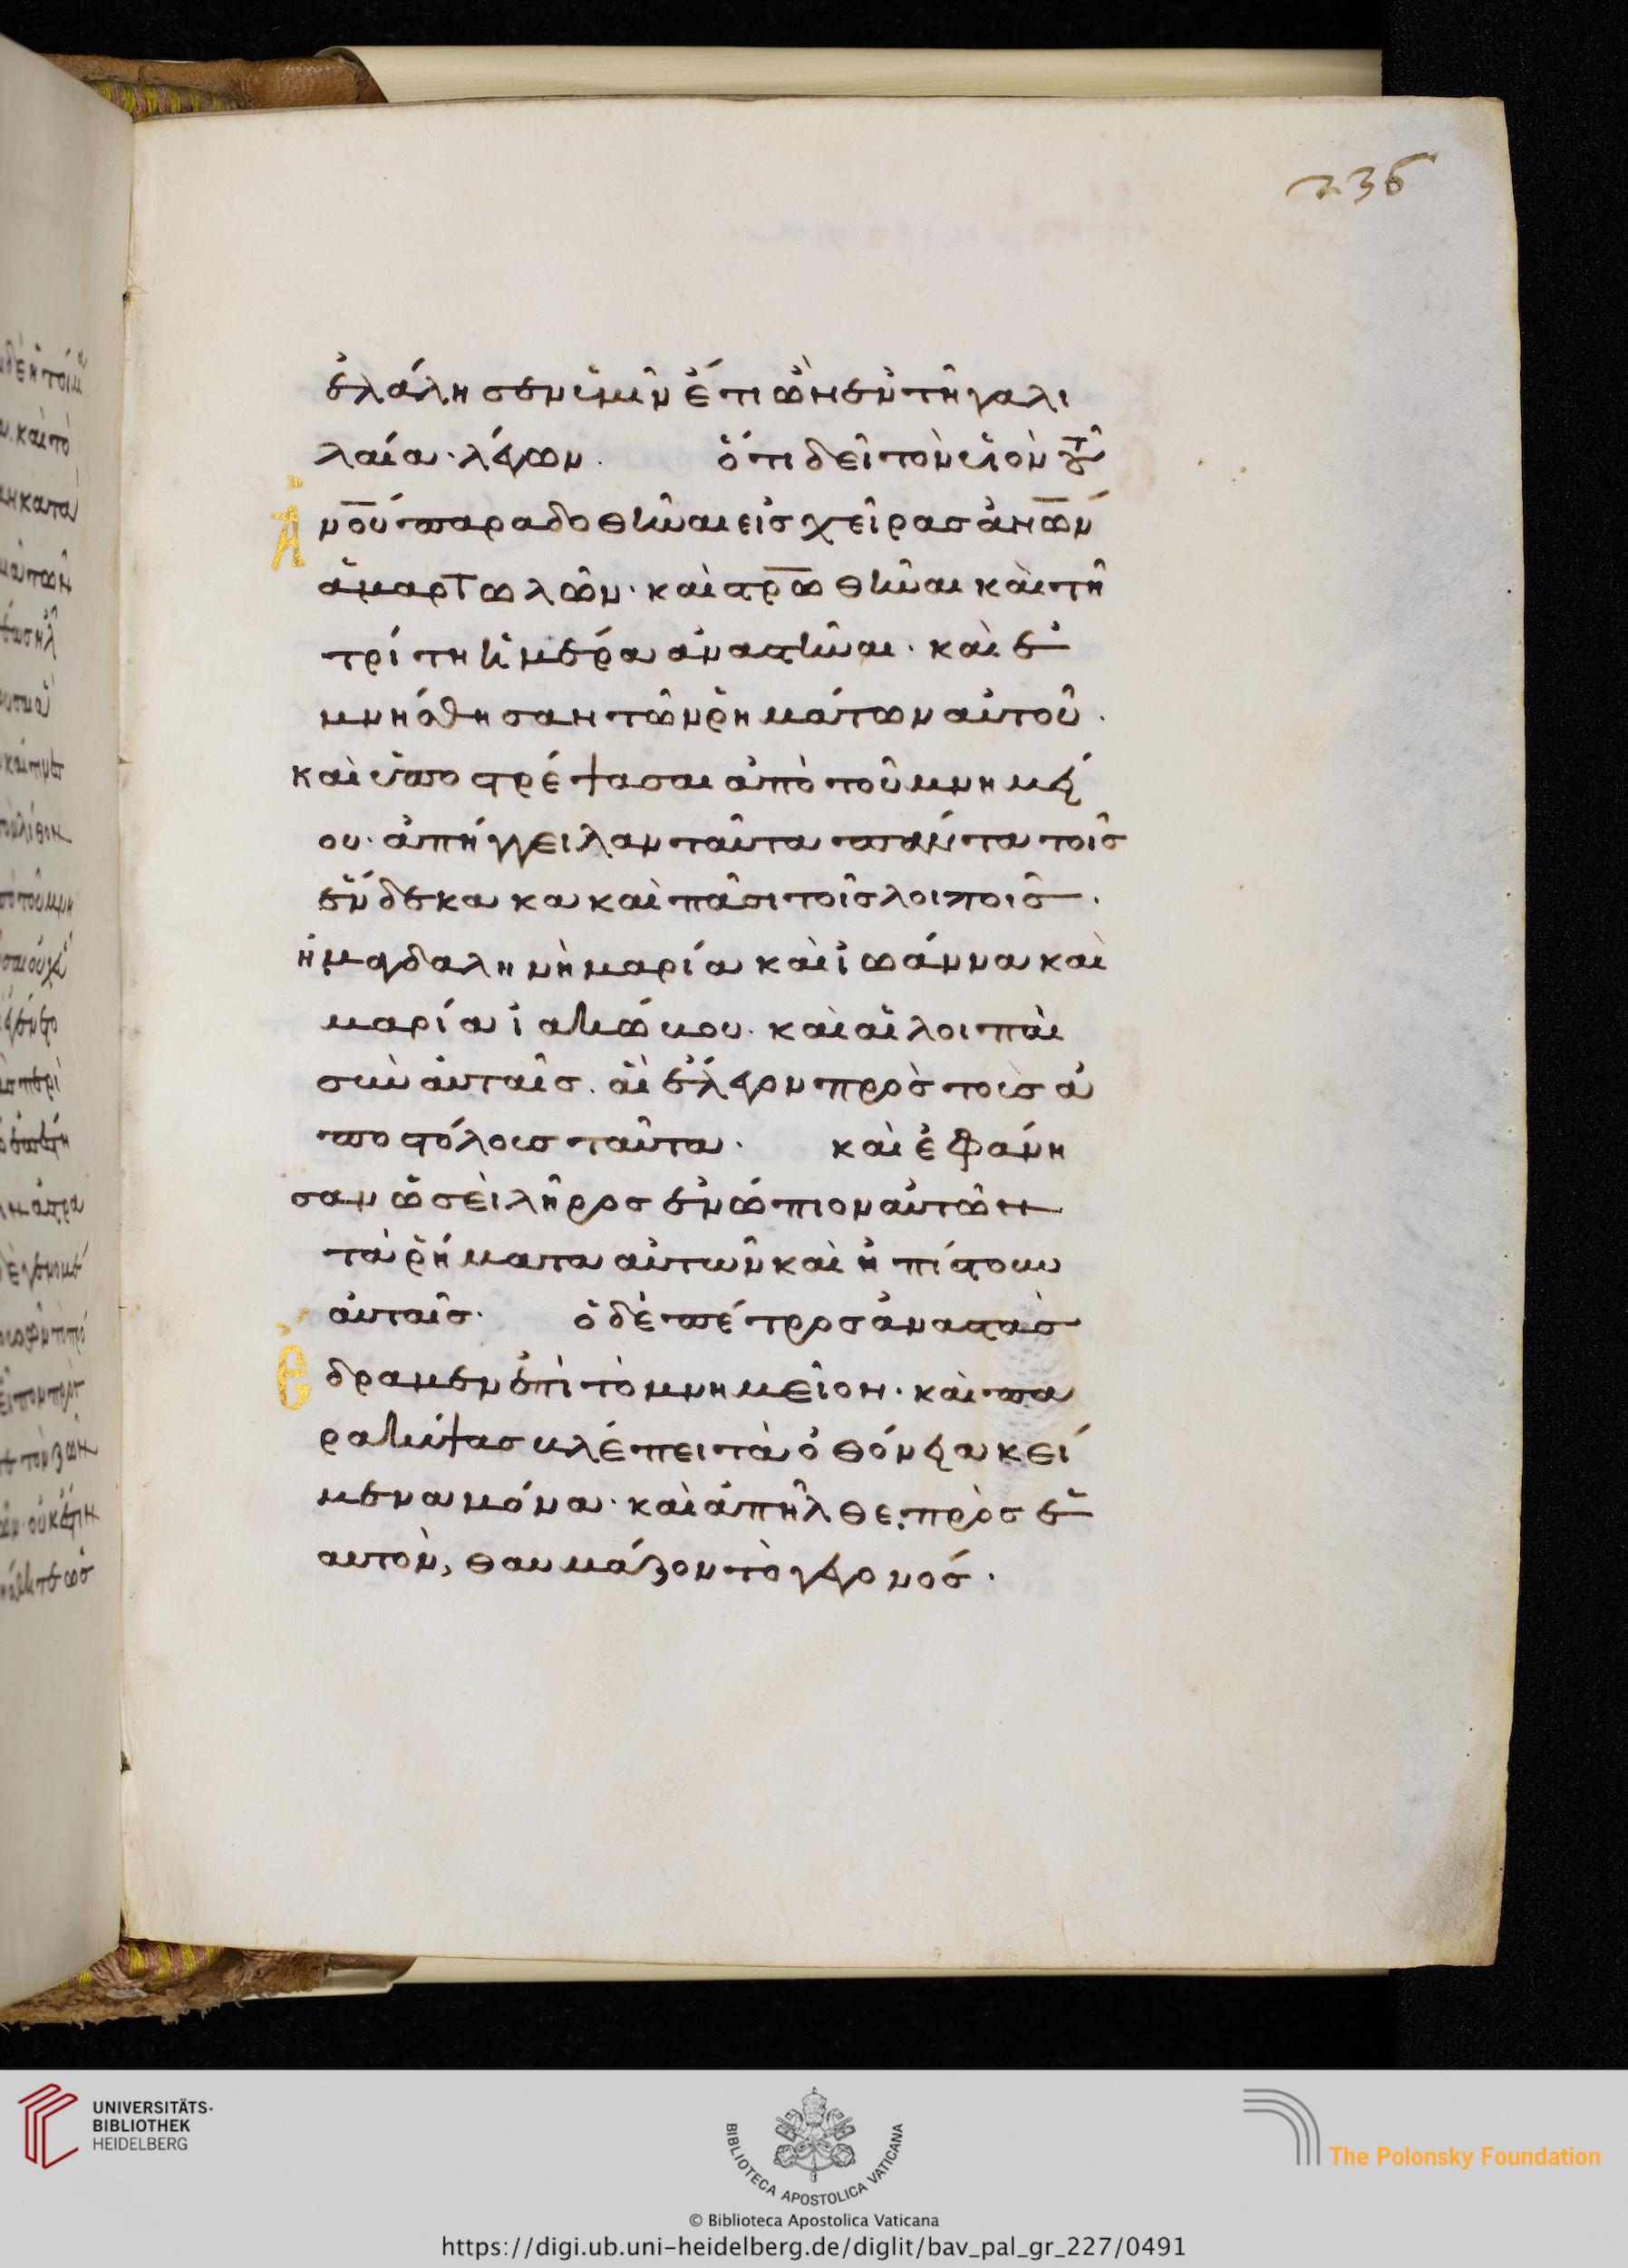 236
ἐλάλησεν ὑμῖν ἔτι ὢν ἐν τῆ γαλι
λαία· λέγων. ὅτι δεῖ τὸν υἱὸν τοῦ
ἀνο̅ύ παραδοθῆναι εἰς χεῖρας ἀνω̅ν
ἁμαρτωλῶν· καὶ στρω̅θῆναι καὶ τῆ
τρίτη ἡμέρα ἀναστῆναι· καὶ ἐ
μνήσθησαν τῶν ῥημάτων αὐτοῦ.
καὶ ὑποστρέψασαι ἀπὸ τοῦ μνημεί
ου· ἀπήγγειλαν ταῦτα πάντα τοῖς
ἕνδεκα κα καὶ πᾶσι τοῖς λοιποῖς.
ἡ μαγδαληνὴ μαρία καὶ ἰωάννα καὶ
μαρία ἰακώβου. καὶ αἱ λοιπαὶ
σὺν αὐταῖς. αἳ ἔλεγον πρὸς τοὺς ἀ
ποστόλους ταῦτα. καὶ ἐφάνη
σαν ὡσεὶ λῆρος ἐνώπιον αὐτῶν
τὰ ῥήματα αὐτῶν καὶ ἠπίστουν
αὐταῖς. ὁ δὲ πέτρος ἀναστὰς
ἔδραμεν ἐπὶ τὸ μνημεῖον. καὶ πα
ρακύψας βλέπει τὰ ὀθόνεια κεί
μενα μόνα· καὶ ἀπῆλθε, πρὸς ἑ
αυτὸν, θαυμάζον τὸ γεγονός.
UNIVERSITÄTS-
BIBLIOTHEK
HEIDELBERG
BIBLIOTECA APOSTOLICA VATICANA
The Polonsky Foundation
© Biblioteca Apostolica Vaticana
https://digi.ub.uni-heidelberg.de/diglit/bav_pal_gr_227/0491